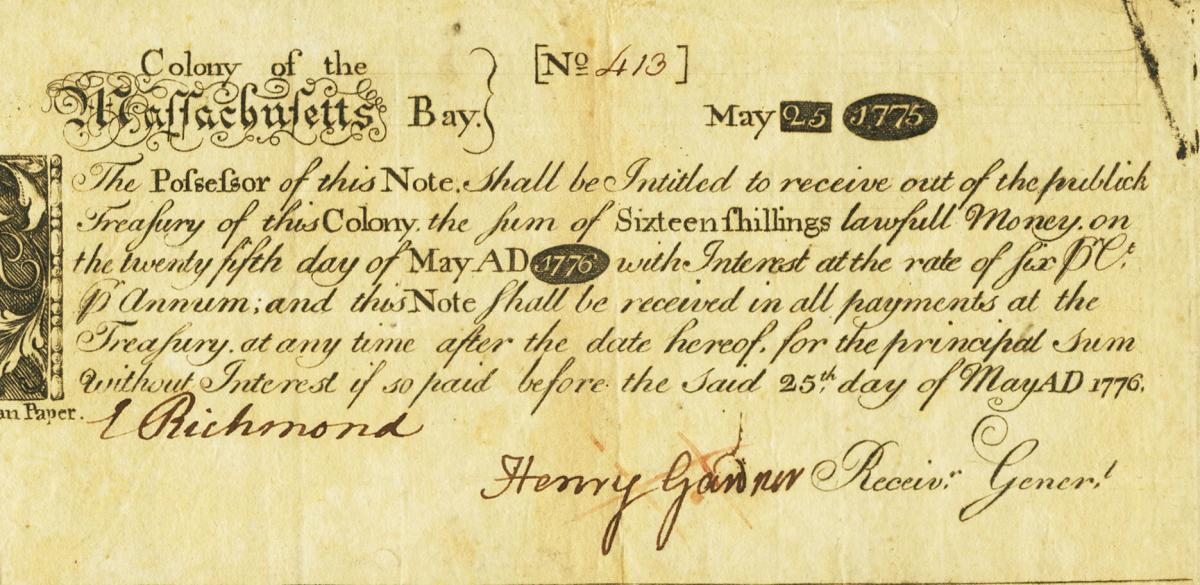 Colony of the [No 413]
Maſſachuſetts Bay. May 25 1775
The Poſseſsor of this Note. shall be Intitled to receive out of the publick
Treaſury of this Colony. the ſum of Sixteen ſhillings lawfull Money. on
the twenty fifth day of May AD 1776 with Interest at the rate of ſix ⅌ Ct.
⅌ Annum; and this Note ſhall be received in all payments at the
Treaſury. at any time after the date hereof, for the principal Sum
without Interest if so paid before the said 25th. day of May AD 1776.
an Paper. E Richmond
Henry Gardner Receivr. Generl.